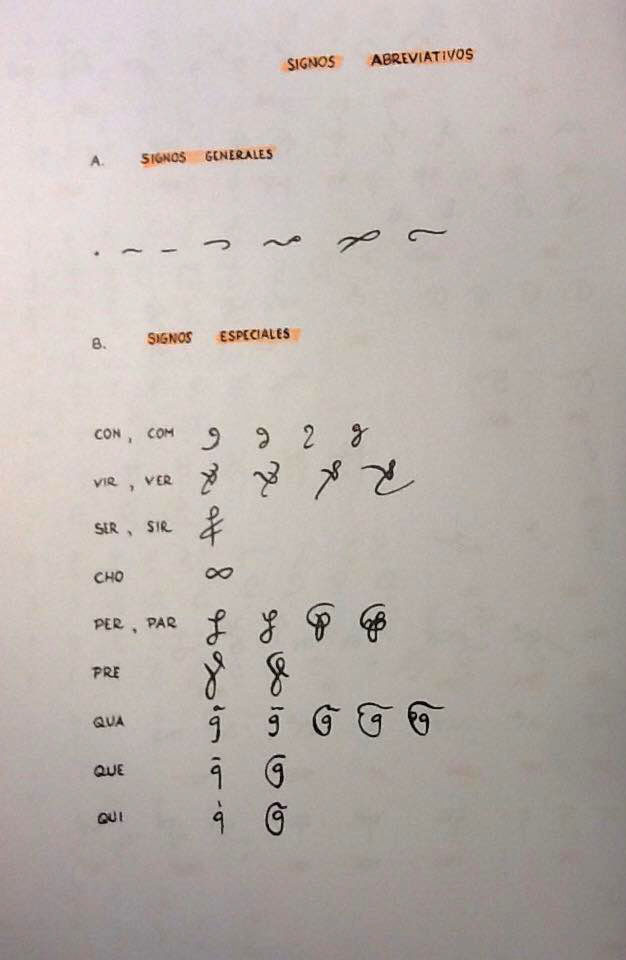 SIGNOS ABREVIATIVOS
A. SIGNOS GENERALES
B. SIGNOS ESPECIALES
CON, COM
VIR, VER
SER, SIR
CHO
PER, PAR
PRE
QUA
QUE
QUI